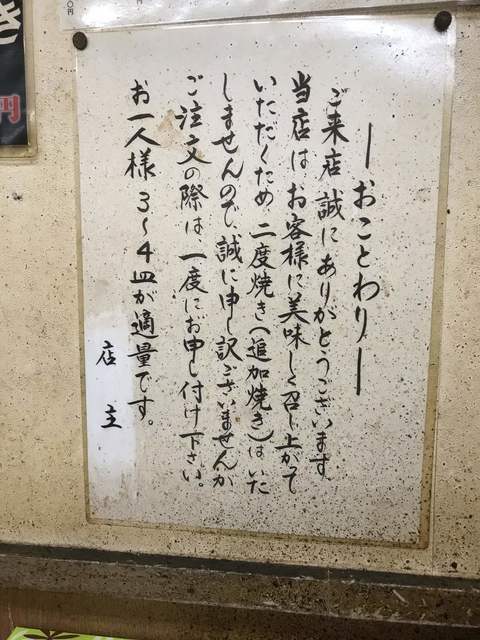 ―おことわり―
ご来店誠にありがとうございます。
当店は、お客様に美味しく召し上がて
いただくため、二度焼き(追加焼き)はいた
しませんので、誠に申し訳ございませんが
ご注文の際は、一度にお申し付け下さい。
お一人様 3〜4皿が適量です。
店 主
き
円
円